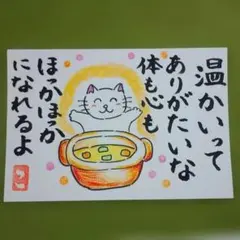 温かいって
ありがたいな
体も心も
ほっかほっか
になれるよ